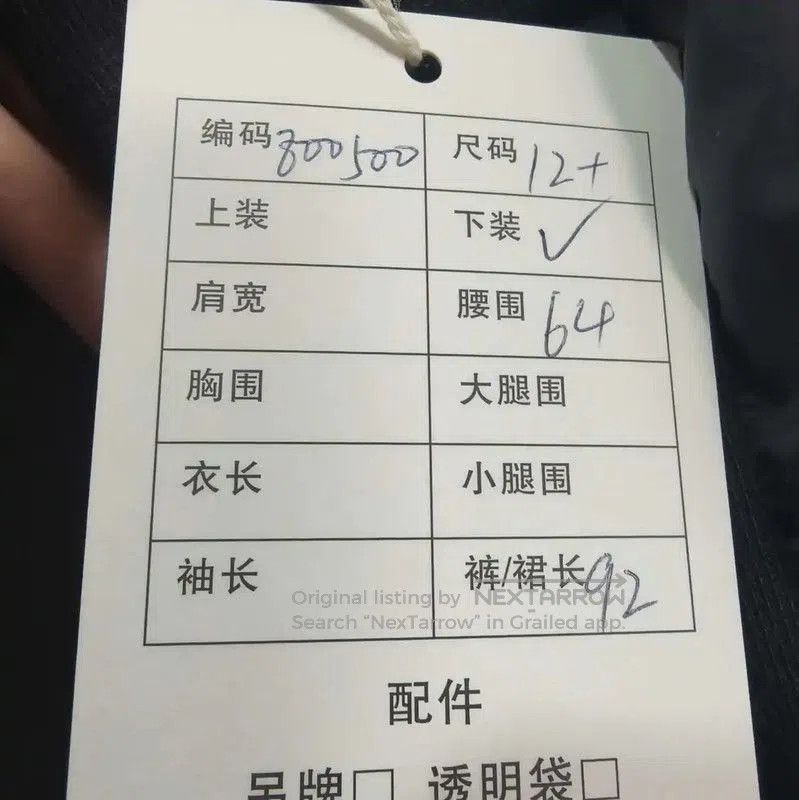 编码 800500 尺码 12+
上装 下装 ✓
肩宽 腰围 64
胸围 大腿围
衣长 小腿围
袖长 裤/裙长 92
Original listing by NEXTARROW
Search "NexTarrow" in Grailed app.
配件
吊牌□ 透明袋□